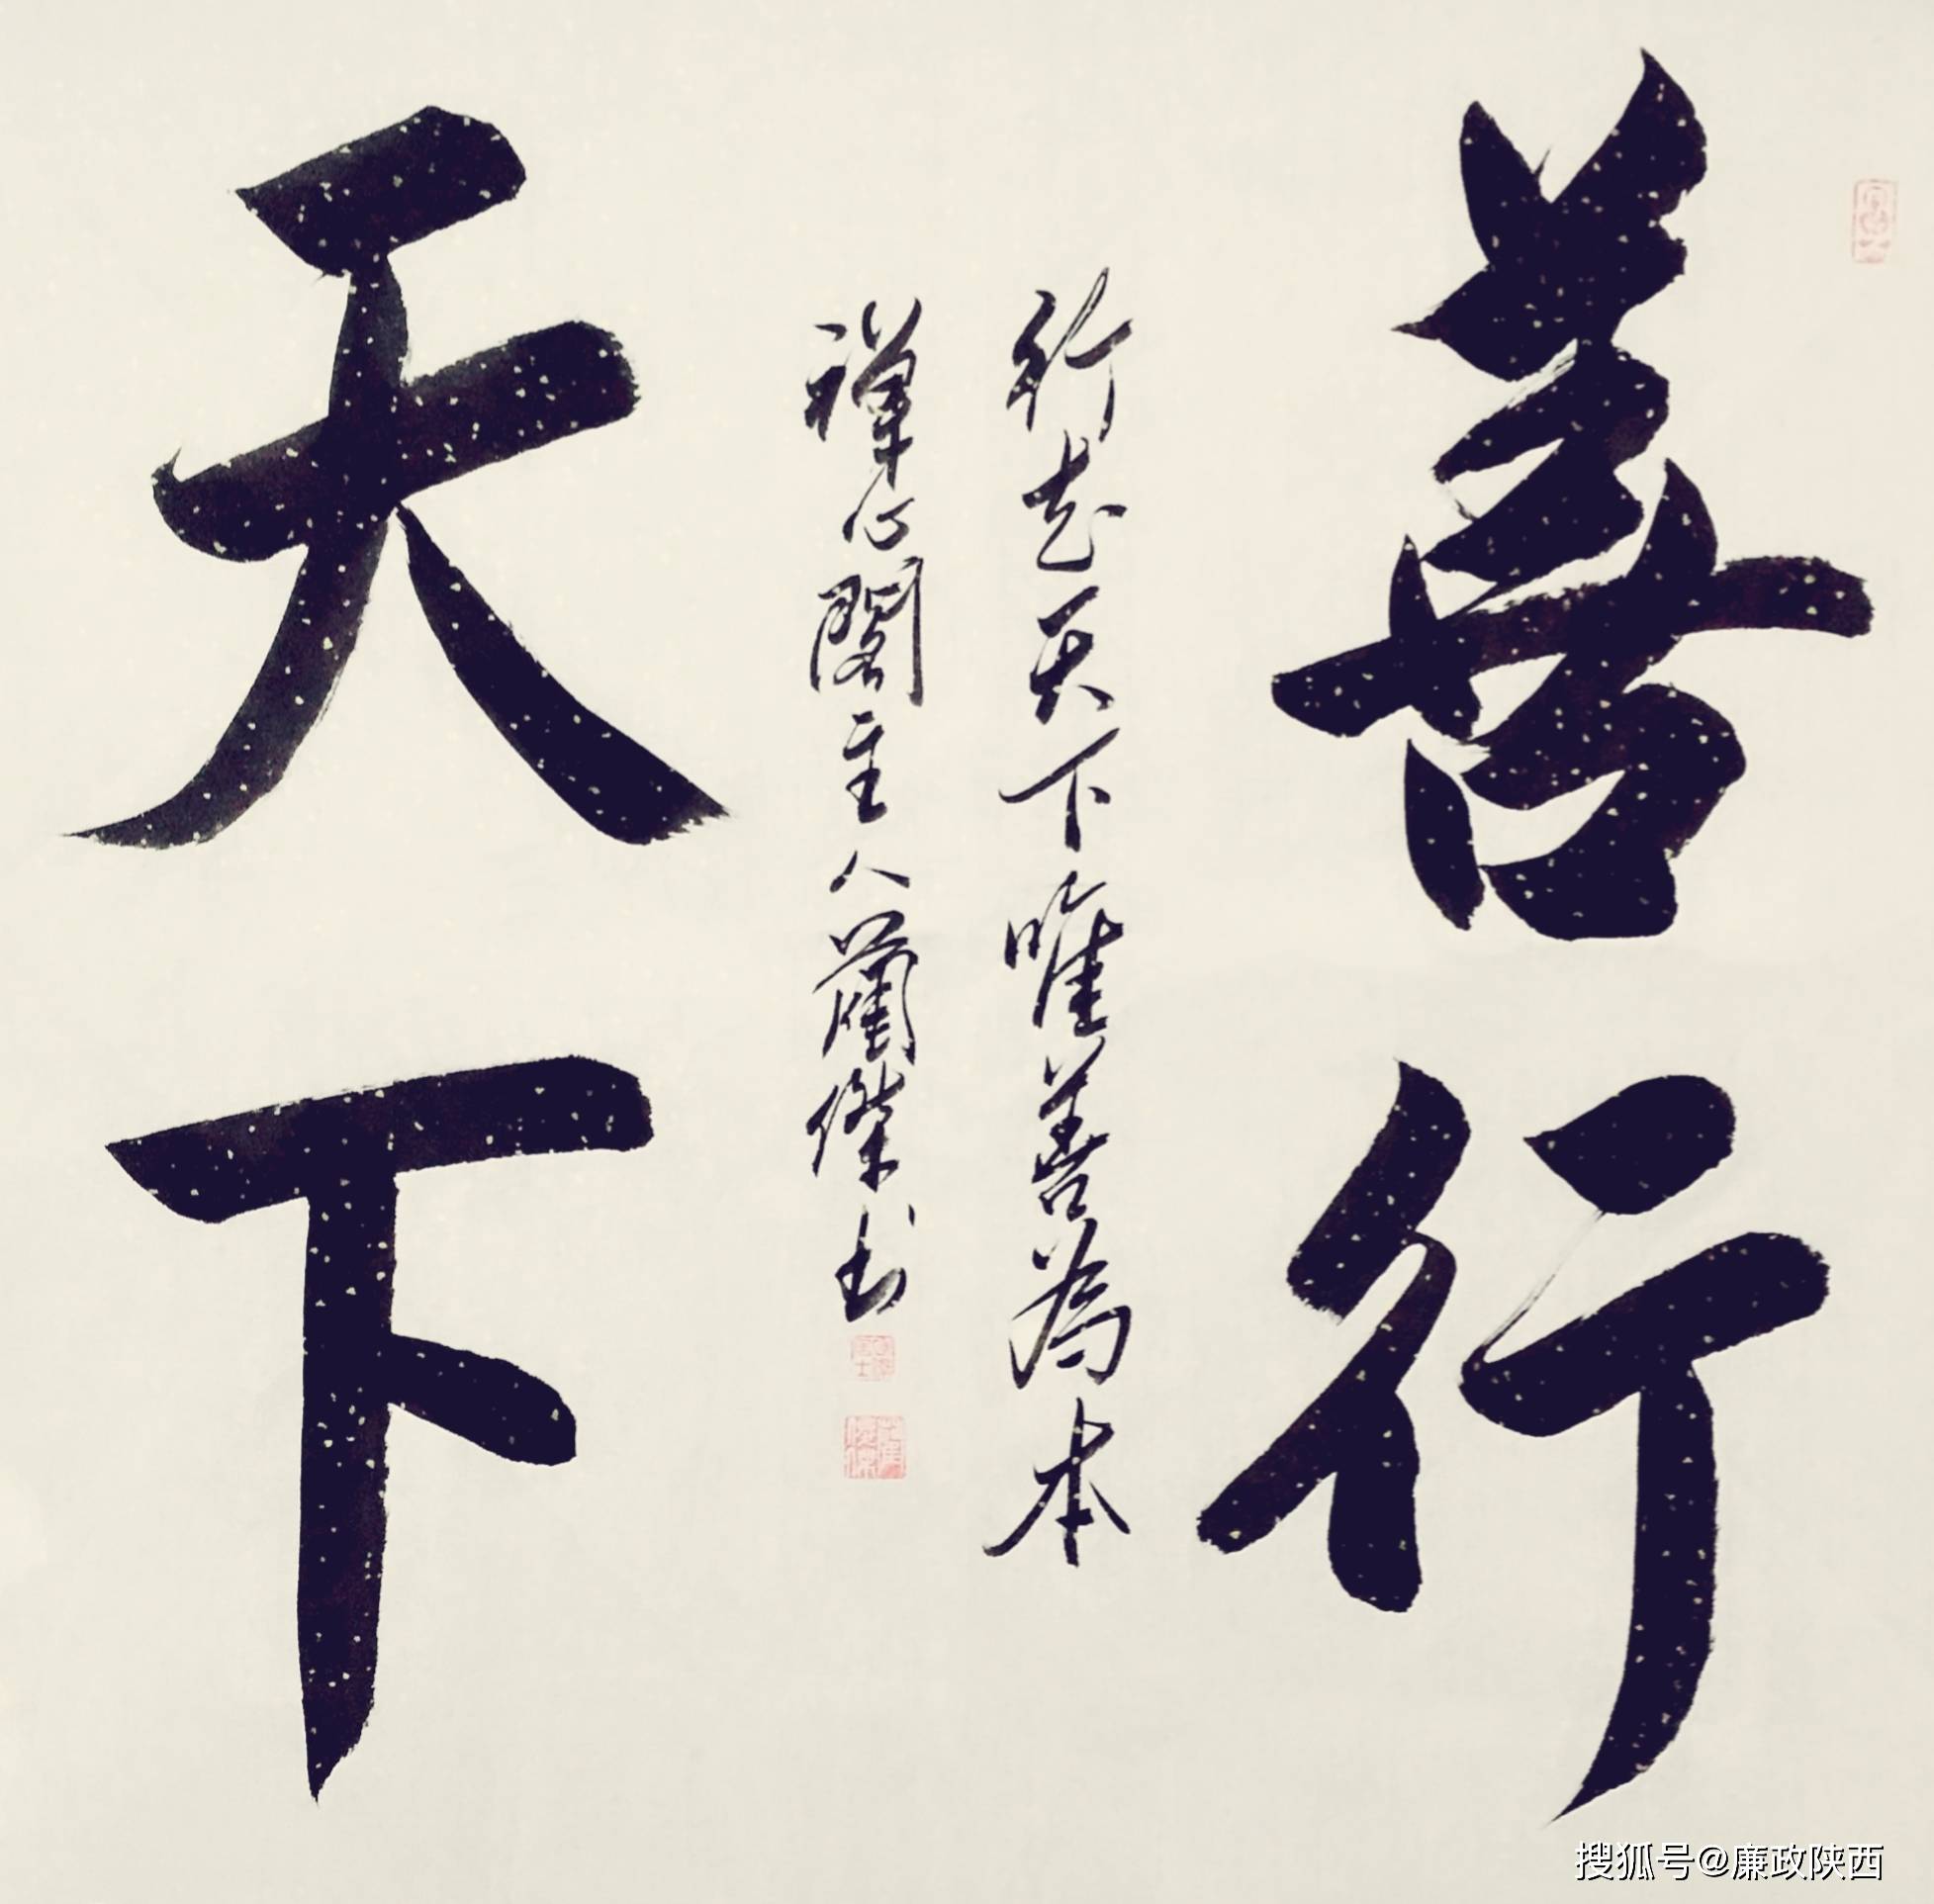 善行
天下
行走天下唯善為本
禅心閣主人蘭傑书
搜狐号@廉政陕西